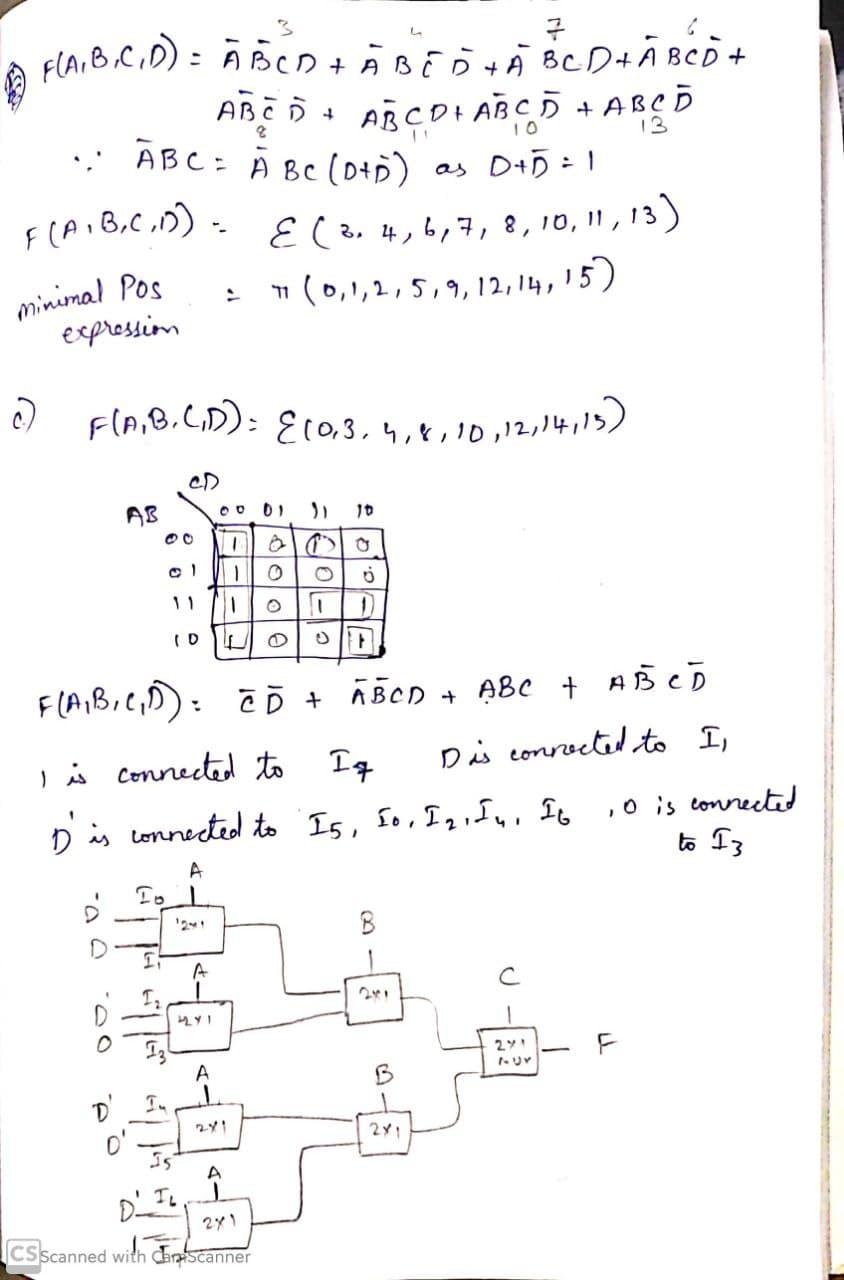 3 4 7 6
F(A,B,C,D) = Ā B̄ C D + Ā B C̄ D̄ + Ā B C D + Ā B C D̄ +
A B̄ C̄ D̄ + A B̄ C D + A B̄ C D̄ + A B C̄ D̄
8 11 10 13
∵ Ā B C = Ā B C (D+D̄) as D+D̄ = 1
F(A,B,C,D) = Σ(3, 4, 6, 7, 8, 10, 11, 13)
minimal Pos = π(0,1,2,5,9,12,14,15)
expression
c) F(A,B,C,D) = Σ(0,3,4,8,10,12,14,15)
CD
AB 00 01 11 10
00 1 0 1 0
01 1 0 0 0
11 1 0 1 1
10 1 0 0 1
F(A,B,C,D) = C̄ D̄ + Ā B̄ C D + A B C + A B̄ C D̄
1 is connected to I7 D is connected to I1
D' is connected to I5, I0, I2, I4, I6, 0 is connected
to I3
A
D' I0
2x1
B
D I1
A
C
D' I2
2x1
2x1
0 I3
2x1
MUX
F
A
B
D' I4
2x1
2x1
D' I5
A
D' I6
2x1
1 I
CS Scanned with CamScanner